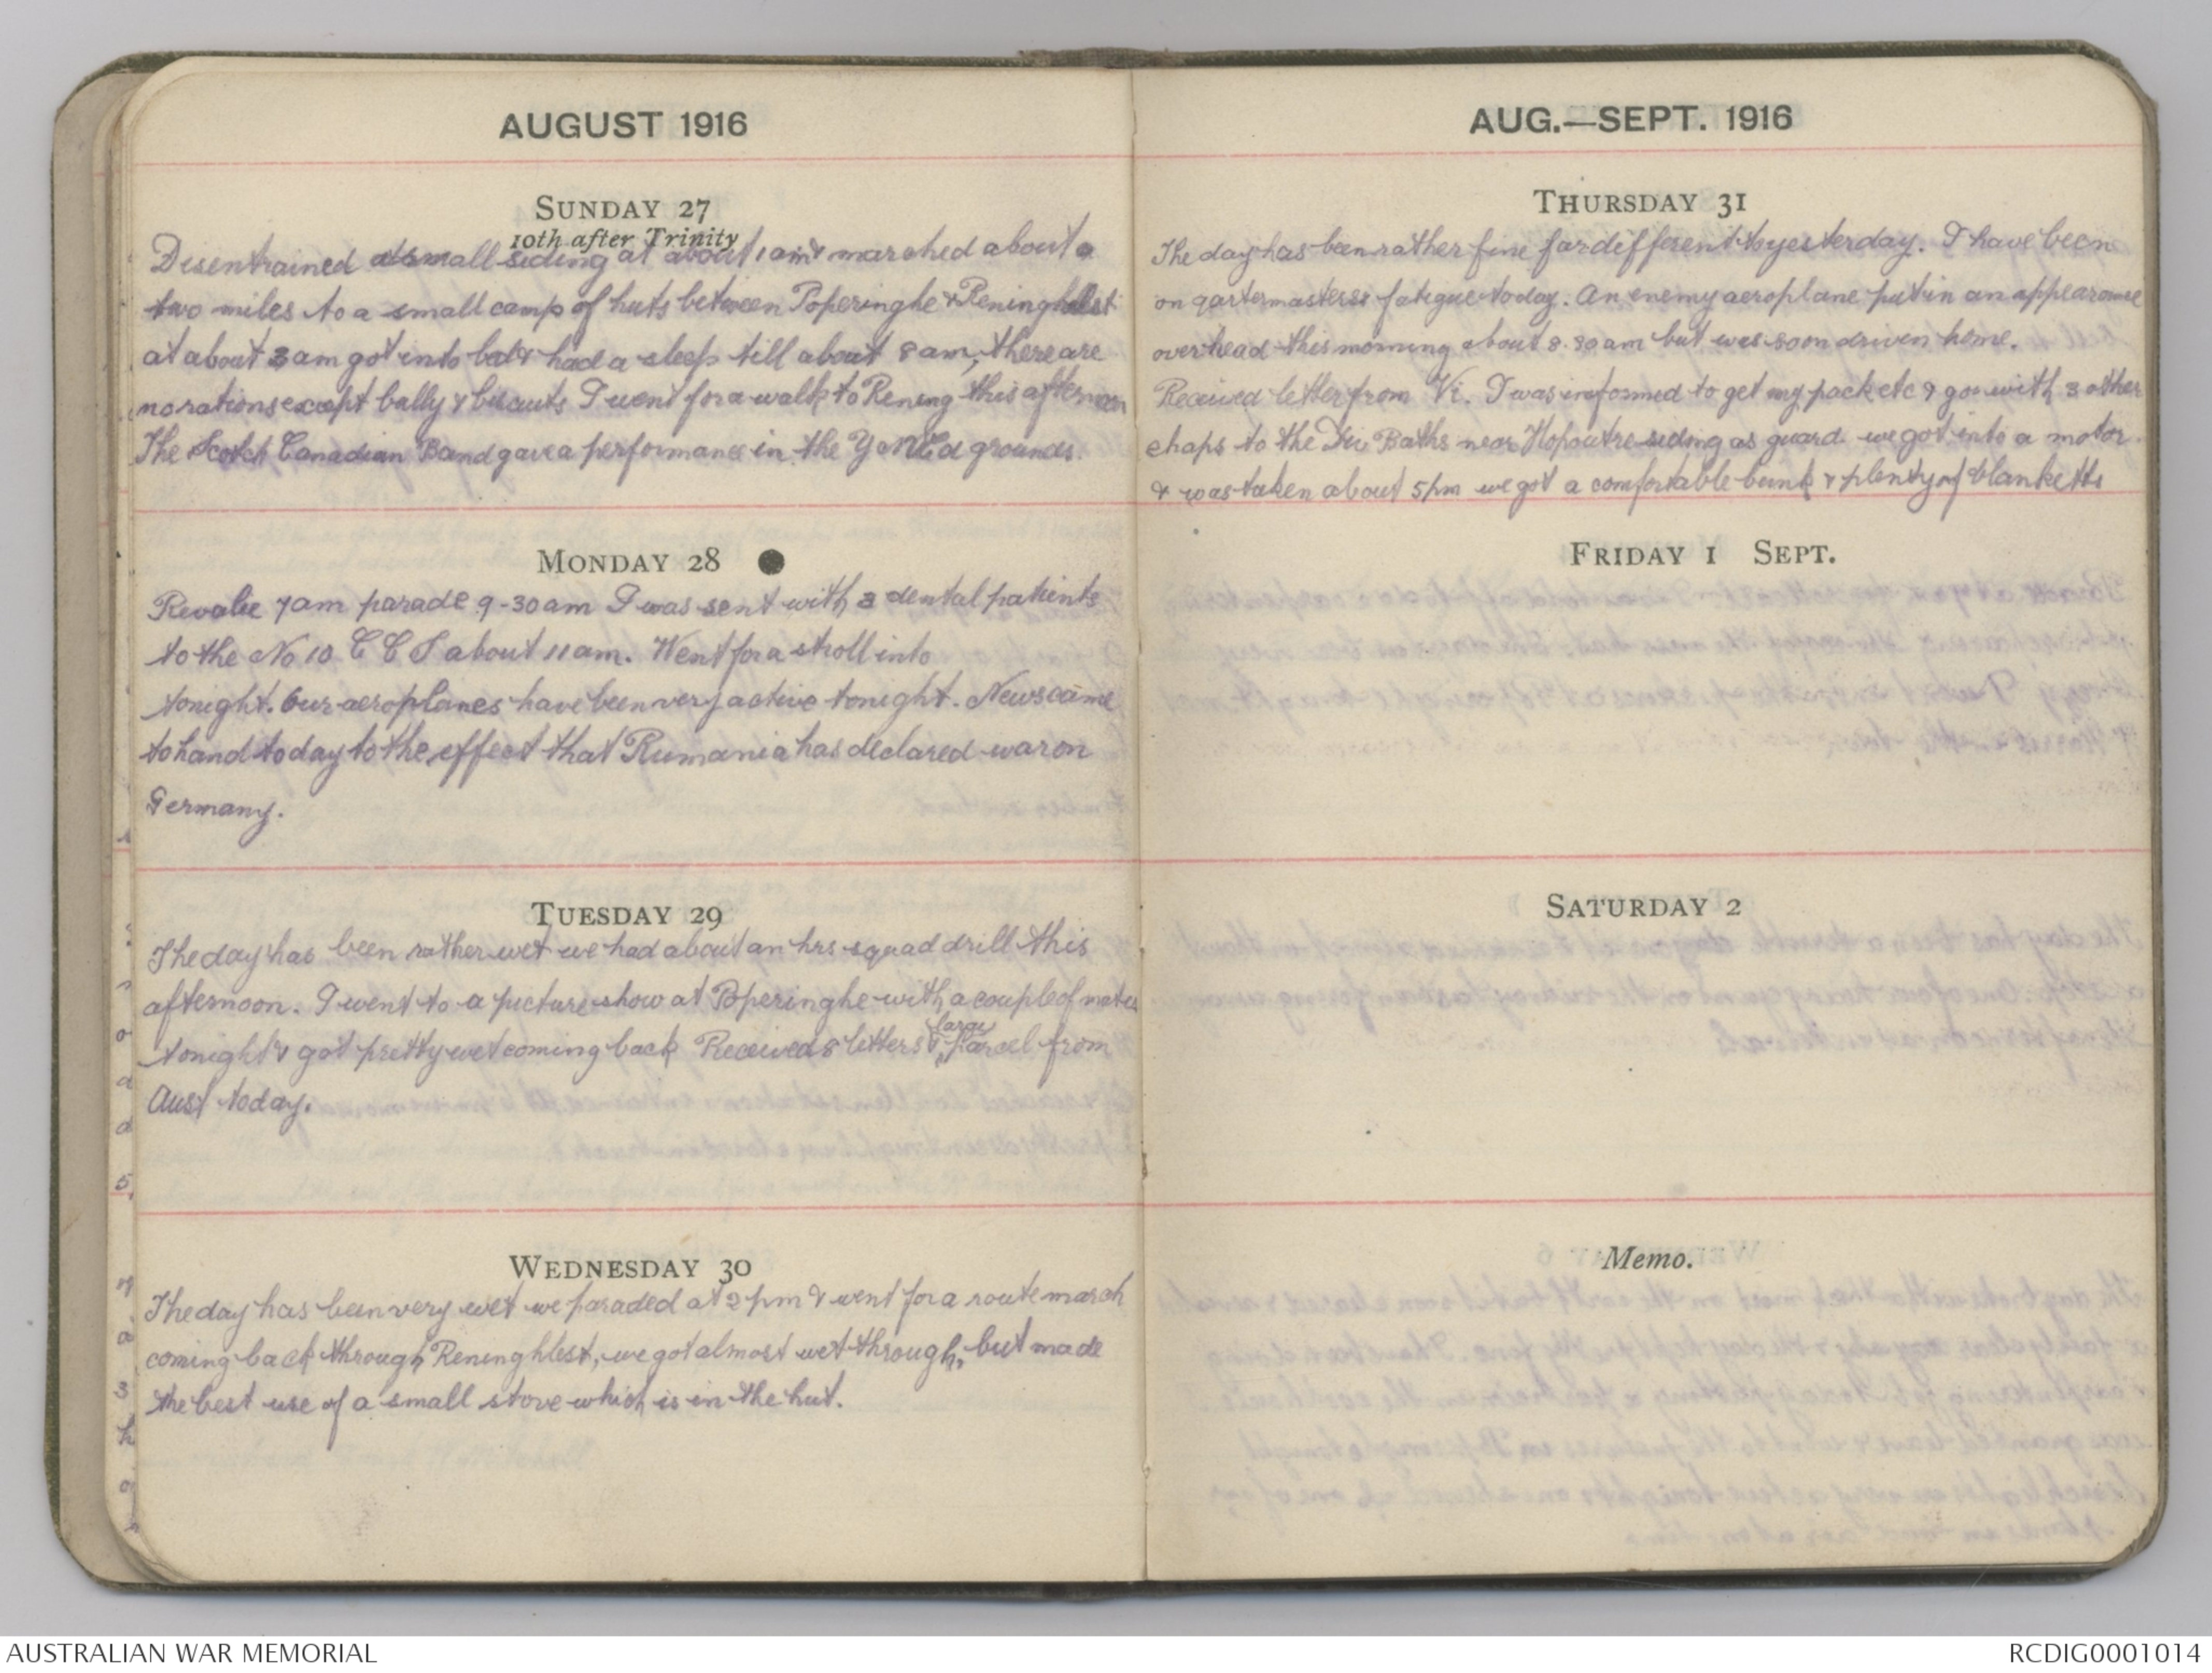 AUGUST 1916
SUNDAY 27
10th after Trinity
Disentrained at small siding at about 1 am & marched about a
two miles to a small camp of huts between Poperinghe & Reninghelst
at about 3 am got into bed & had a sleep till about 8 am, there are
no rations except bully & biscuits I went for a walk to Rening this afternoon
The Scotch Canadian Band gave a performance in the YMCA grounds.
MONDAY 28
Revalie 7am parade 9-30am I was sent with 3 dental patients
to the No 10 C C S about 11 am. Went for a stroll into
tonight. Our aeroplanes have been very active tonight. News came
to hand today to the effect that Rumania has declared war on
Germany.
TUESDAY 29
The day has been rather wet we had about an hrs squad drill this
afternoon. I went to a picture show at Poperinghe with a couple of mates
tonight & got pretty wet coming back Received 8 letters & large parcel from
Aust today.
WEDNESDAY 30
The day has been very wet we paraded at 2 pm & went for a route march
coming back through Reninghlest, we got almost wet through, but made
the best use of a small stove which is in the hut.
AUG.—SEPT. 1916
THURSDAY 31
The day has been rather fine far different to yesterday. I have been
on qartermasters fatigue today. An enemy aeroplane put in an appearance
overhead this morning about 8.30 am but was soon driven home.
Received letter from Vi. I was informed to get my pack etc & go with 3 other
chaps to the Div Baths near Hopoutre siding as guard we got into a motor
& was taken about 5pm we got a comfortable bunk & plenty of blanketts
FRIDAY 1 SEPT.
SATURDAY 2
Memo.
AUSTRALIAN WAR MEMORIAL
RCDIG0001014